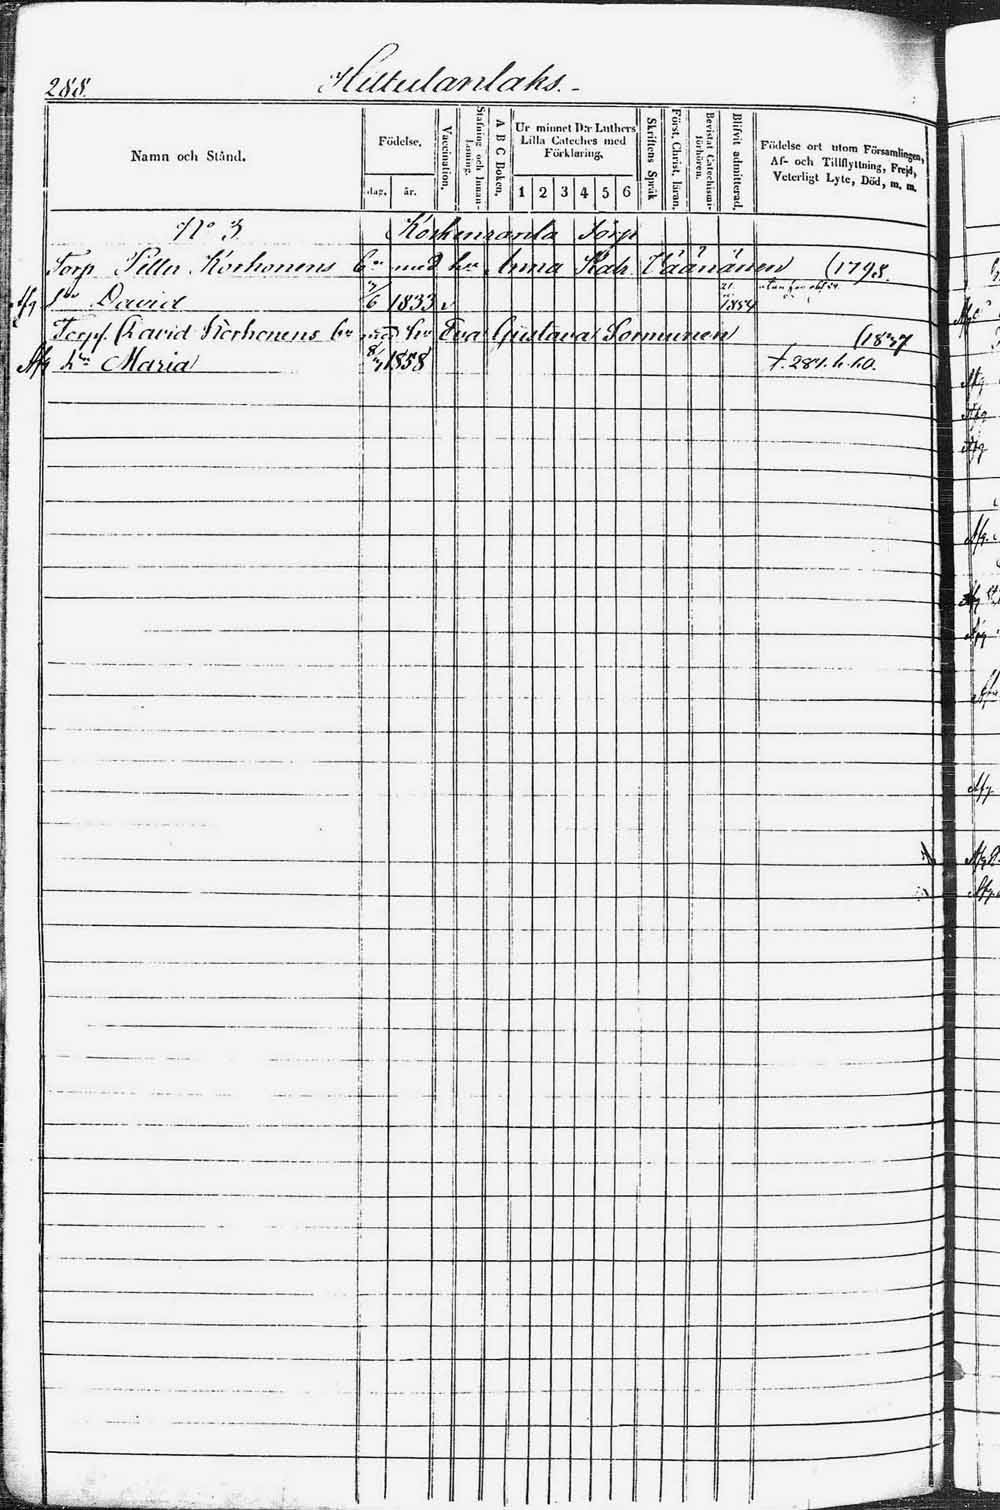 288. Hiltulanlaks.
Namn och Stånd.
Födelse,
dag, år.
Vaccination.
Stafning och Innan-Läsning.
A B C Boken.
Ur minnet D:r Luthers Lilla Cateches med Förklaring,
1 2 3 4 5 6
Skriftens Språk
Först, Christ, läran,
Bevistat Catechismi-förhören.
Blifvit admitterad,
Födelse ort utom Församlingen,
Af- och Tillflyttning, Frejd,
Veterligt Lyte, Död, m. m.
No 3 Korkenranta Torp
Torp. Petter Korhonens br med hu Anna Katr. Väänänen (1798.
Afg Sn David 7/6 1833 v 1854
Torpf. David Korhonens br med hu Eva Gustava Sormunen (1837
Afg hn Maria 1858 f. 281. k. h.